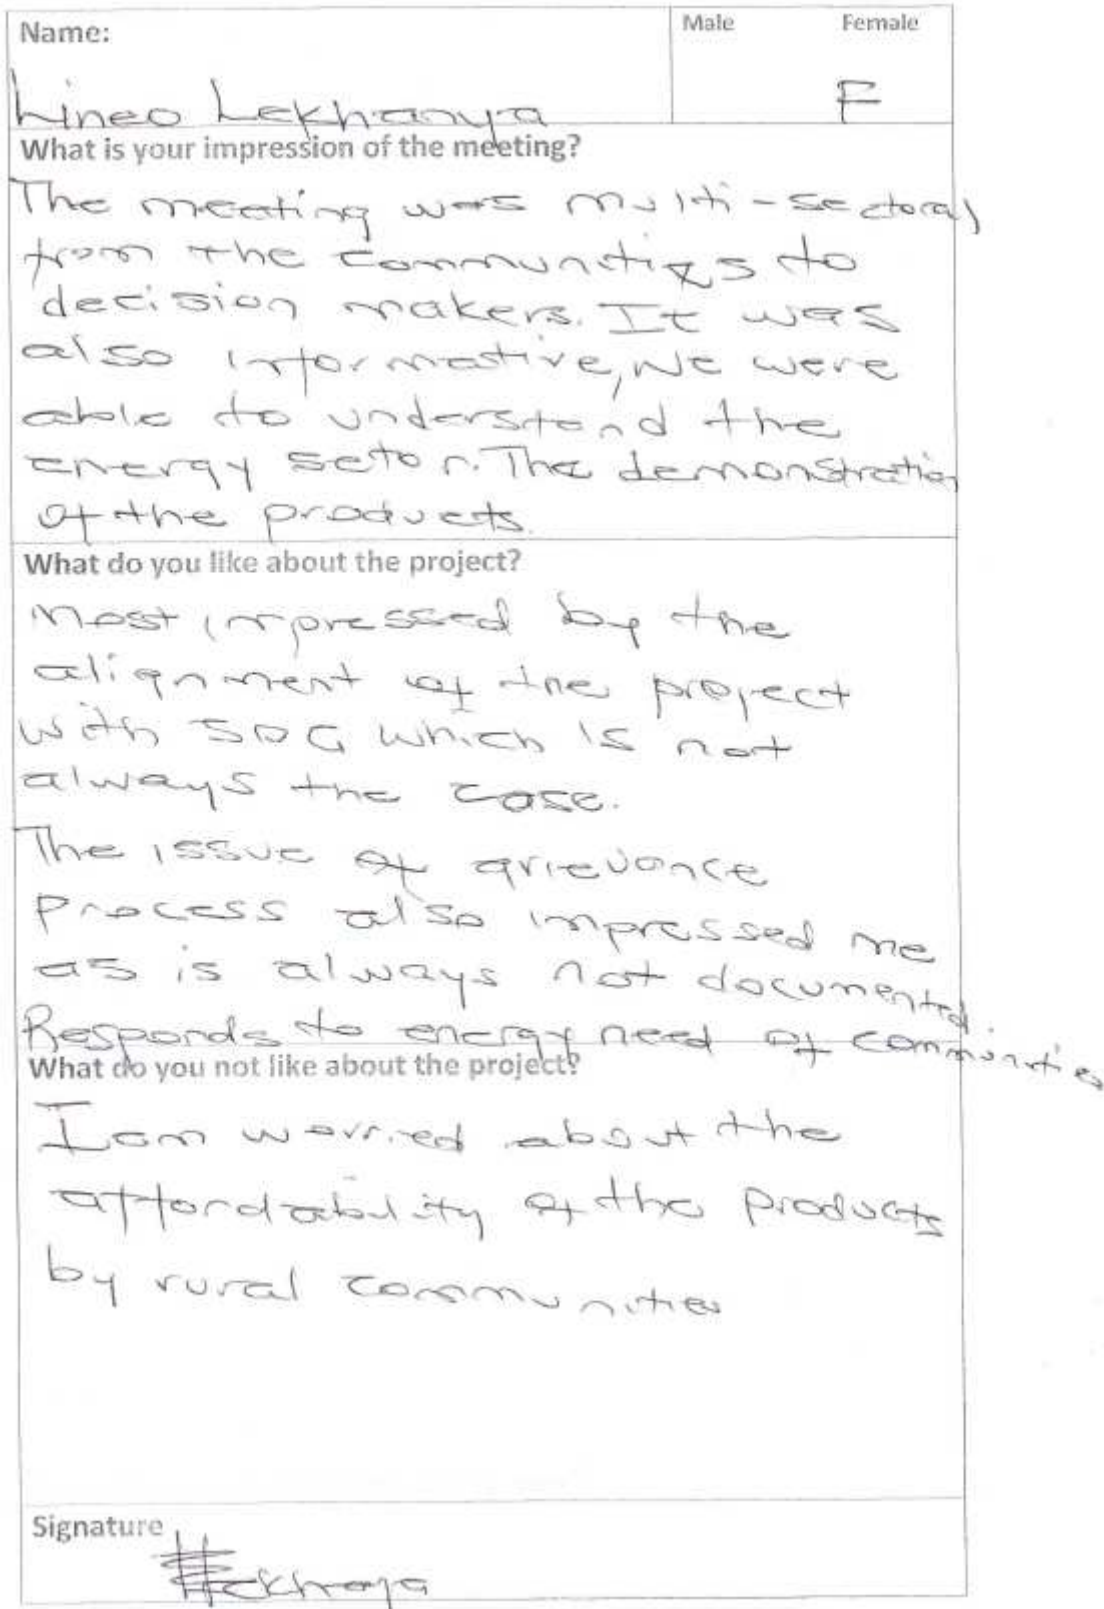 Name:
Male Female
Lineo Lekhanya
F
What is your impression of the meeting?
The meeting was multi-sectoral
from the communities to
decision makers. It was
also informative, we were
able to understand the
energy setor. The demonstration
of the products.
What do you like about the project?
Most impressed by the
alignment of the project
with SDG which is not
always the case.
The issue of grievance
process also impressed me
as is always not documented.
Responds to energy need of communities
What do you not like about the project?
I am worried about the
affordability of the products
by rural communities
Signature